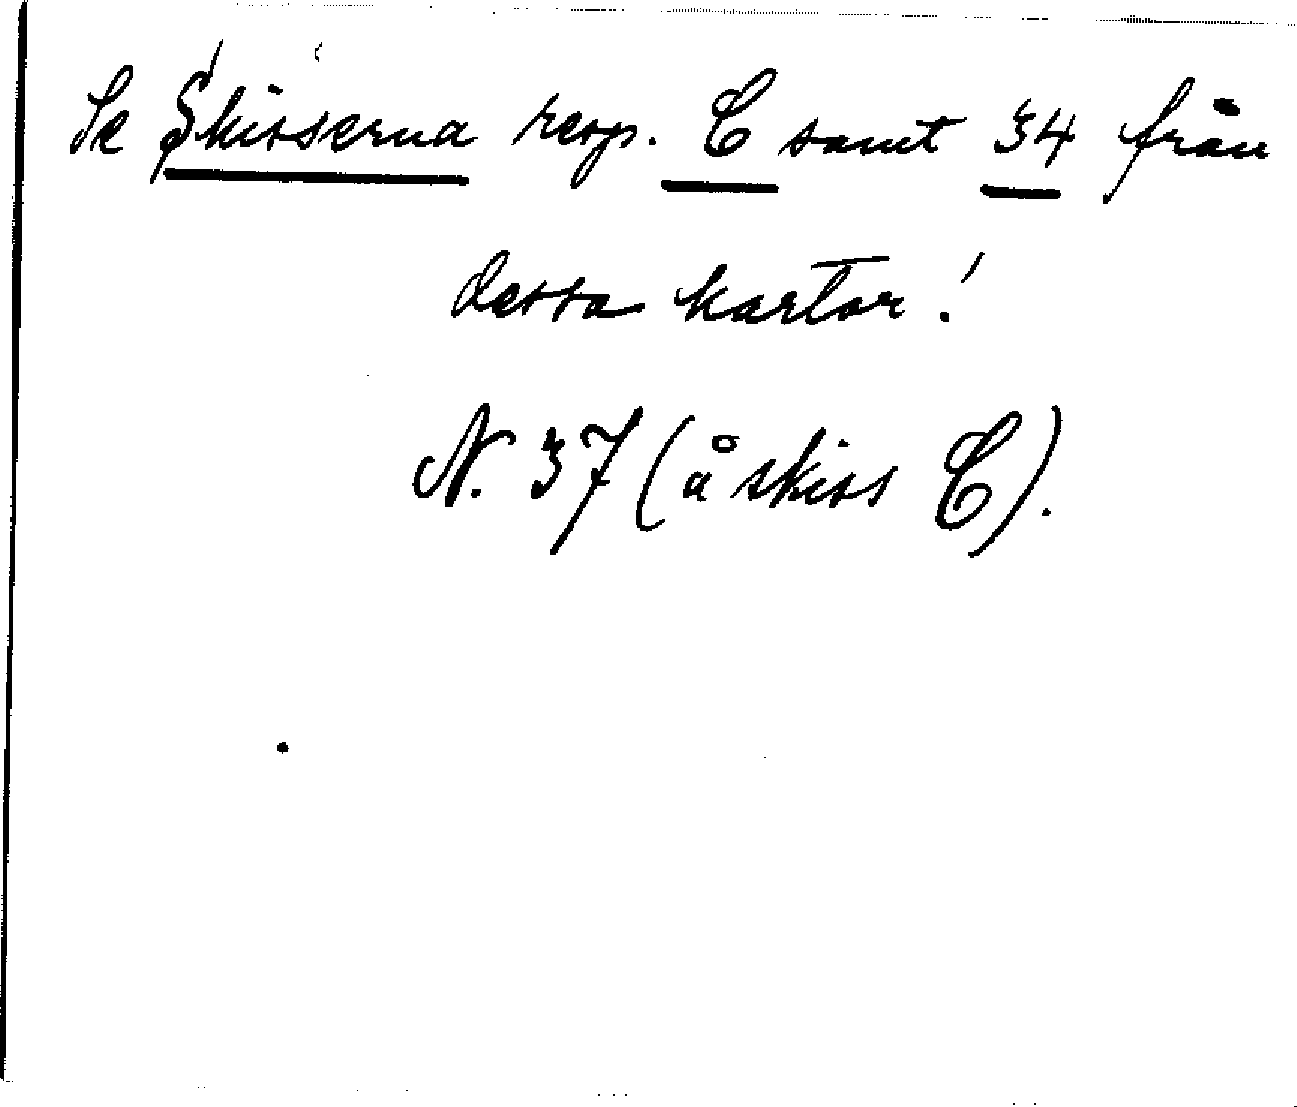 Se Skisserna resp. C samt 34 från
dessa kartor!
N. 37 (å skiss C).